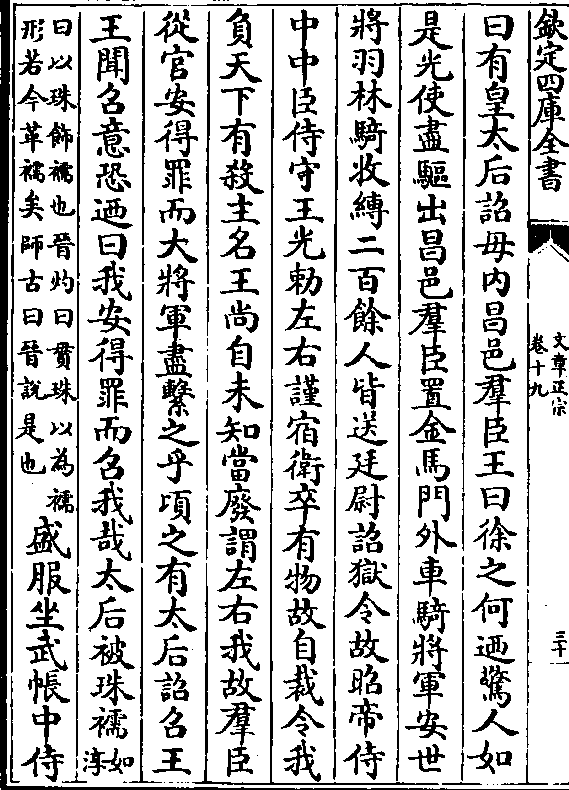 欽定四庫全書
文章正宗
卷十九
三十一
曰有皇太后詔毋内昌邑羣臣王曰徐之何迺驚人如
是光使盡驅出昌邑羣臣置金馬門外車騎將軍安世
將羽林騎收縛二百餘人皆送廷尉詔獄令故昭帝侍
中中臣侍守王光勅左右謹宿衛卒有物故自裁令我
負天下有殺主名王尚自未知當廢謂左右我故羣臣
從官安得罪而大將軍盡繫之乎頃之有太后詔召王
王聞召意恐迺曰我安得罪而召我哉太后被珠襦如淳
曰以珠飾襦也晉灼曰貫珠以為襦
形若今革襦矣師古曰晉説是也
盛服坐武帳中侍